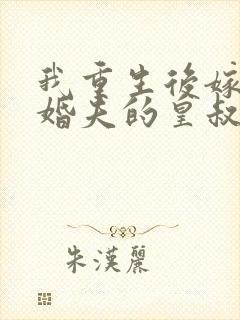 我重生後嫁
婚夫的皇叔
朱漢麗